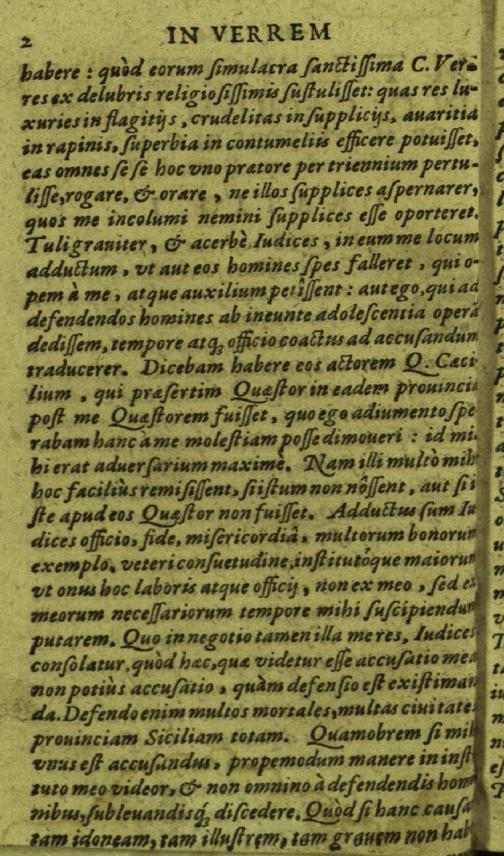 2 IN VERREM
habere : quòd eorum ſimulacra ſanctiſſima C. Ver-
res ex delubris religioſiſſimis ſuſtuliſſet: quas res lu-
xuries in flagitijs, crudelitas in ſupplicijs, auaritia
in rapinis, ſuperbia in contumeliis efficere potuiſſet,
eas omnes ſe ſe hoc vno prætore per triennium pertu-
liſſe, rogare, & orare, ne illos ſupplices aſpernarer,
quos me incolumi nemini ſupplices eſſe oporteret.
Tuli grauiter, & acerbè Iudices, in eum me locum
adductum, vt aut eos homines ſpes falleret, qui o-
pem à me, atque auxilium petiſſent : aut ego, qui ad
defendendos homines ab ineunte adoleſcentia operā
dediſſem, tempore atq; officio coactus ad accuſandum
traducerer. Dicebam habere eos actorem Q. Cæci
lium, qui præſertim Quæſtor in eadem prouincia
poſt me Quæſtorem fuiſſet, quo ego adiumento ſpe
rabam hanc à me moleſtiam poſſe dimoueri : id mi-
hi erat aduerſarium maximè. Nam illi multò mihi
hoc faciliùs remiſiſſent, ſi iſtum non nôſſent, aut ſi i
ſte apud eos Quæſtor non fuiſſet. Adductus ſum Iu
dices officio, fide, miſericordiâ, multorum bonorum
exemplo, veteri conſuetudine, inſtitutóque maiorum
vt onus hoc laboris atque officij, non ex meo, ſed ex
meorum neceſſariorum tempore mihi ſuſcipiendum
putarem. Quo in negotio tamen illa me res, Iudices
conſolatur, quòd hæc, quæ videtur eſſe accuſatio mea
non potiùs accuſatio, quàm defenſio eſt exiſtiman
da. Defendo enim multos mortales, multas ciuitates
prouinciam Siciliam totam. Quamobrem ſi mihi
vnus eſt accuſandus, propemodum manere in inſti
tuto meo videor, & non omnino à defendendis homi
nibus, ſubleuandisq; diſcedere. Quòd ſi hanc cauſa
tam idoneam, tam illuſtrem, tam grauem non hab